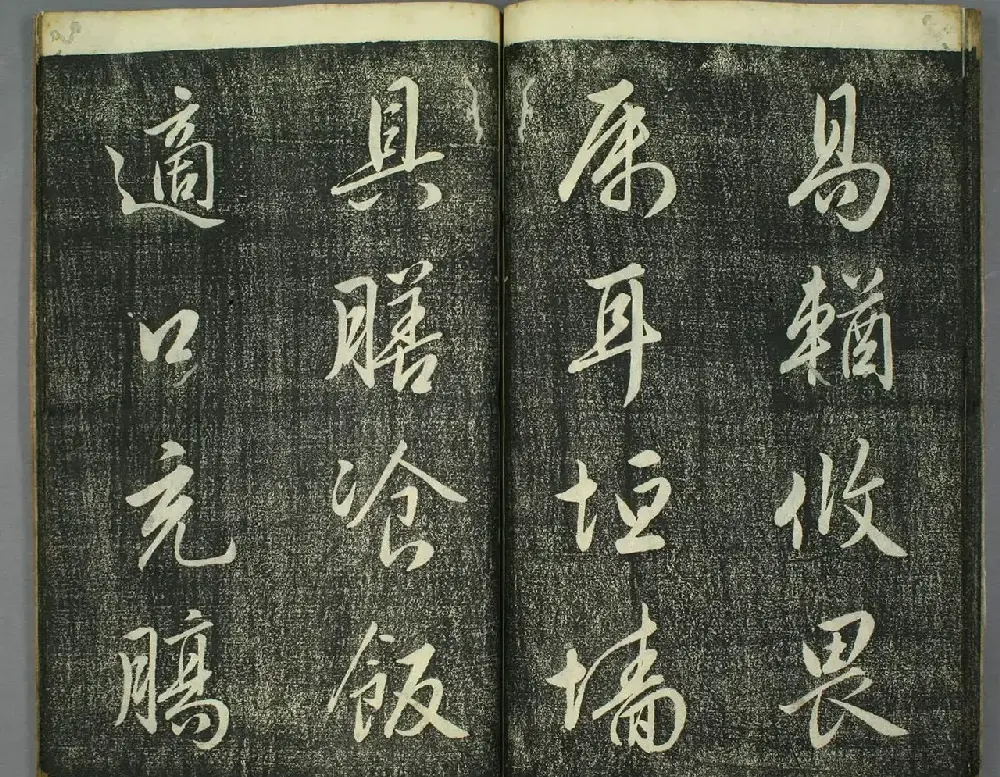 易輶攸畏
属耳垣墙
具膳飡飯
適口充膓